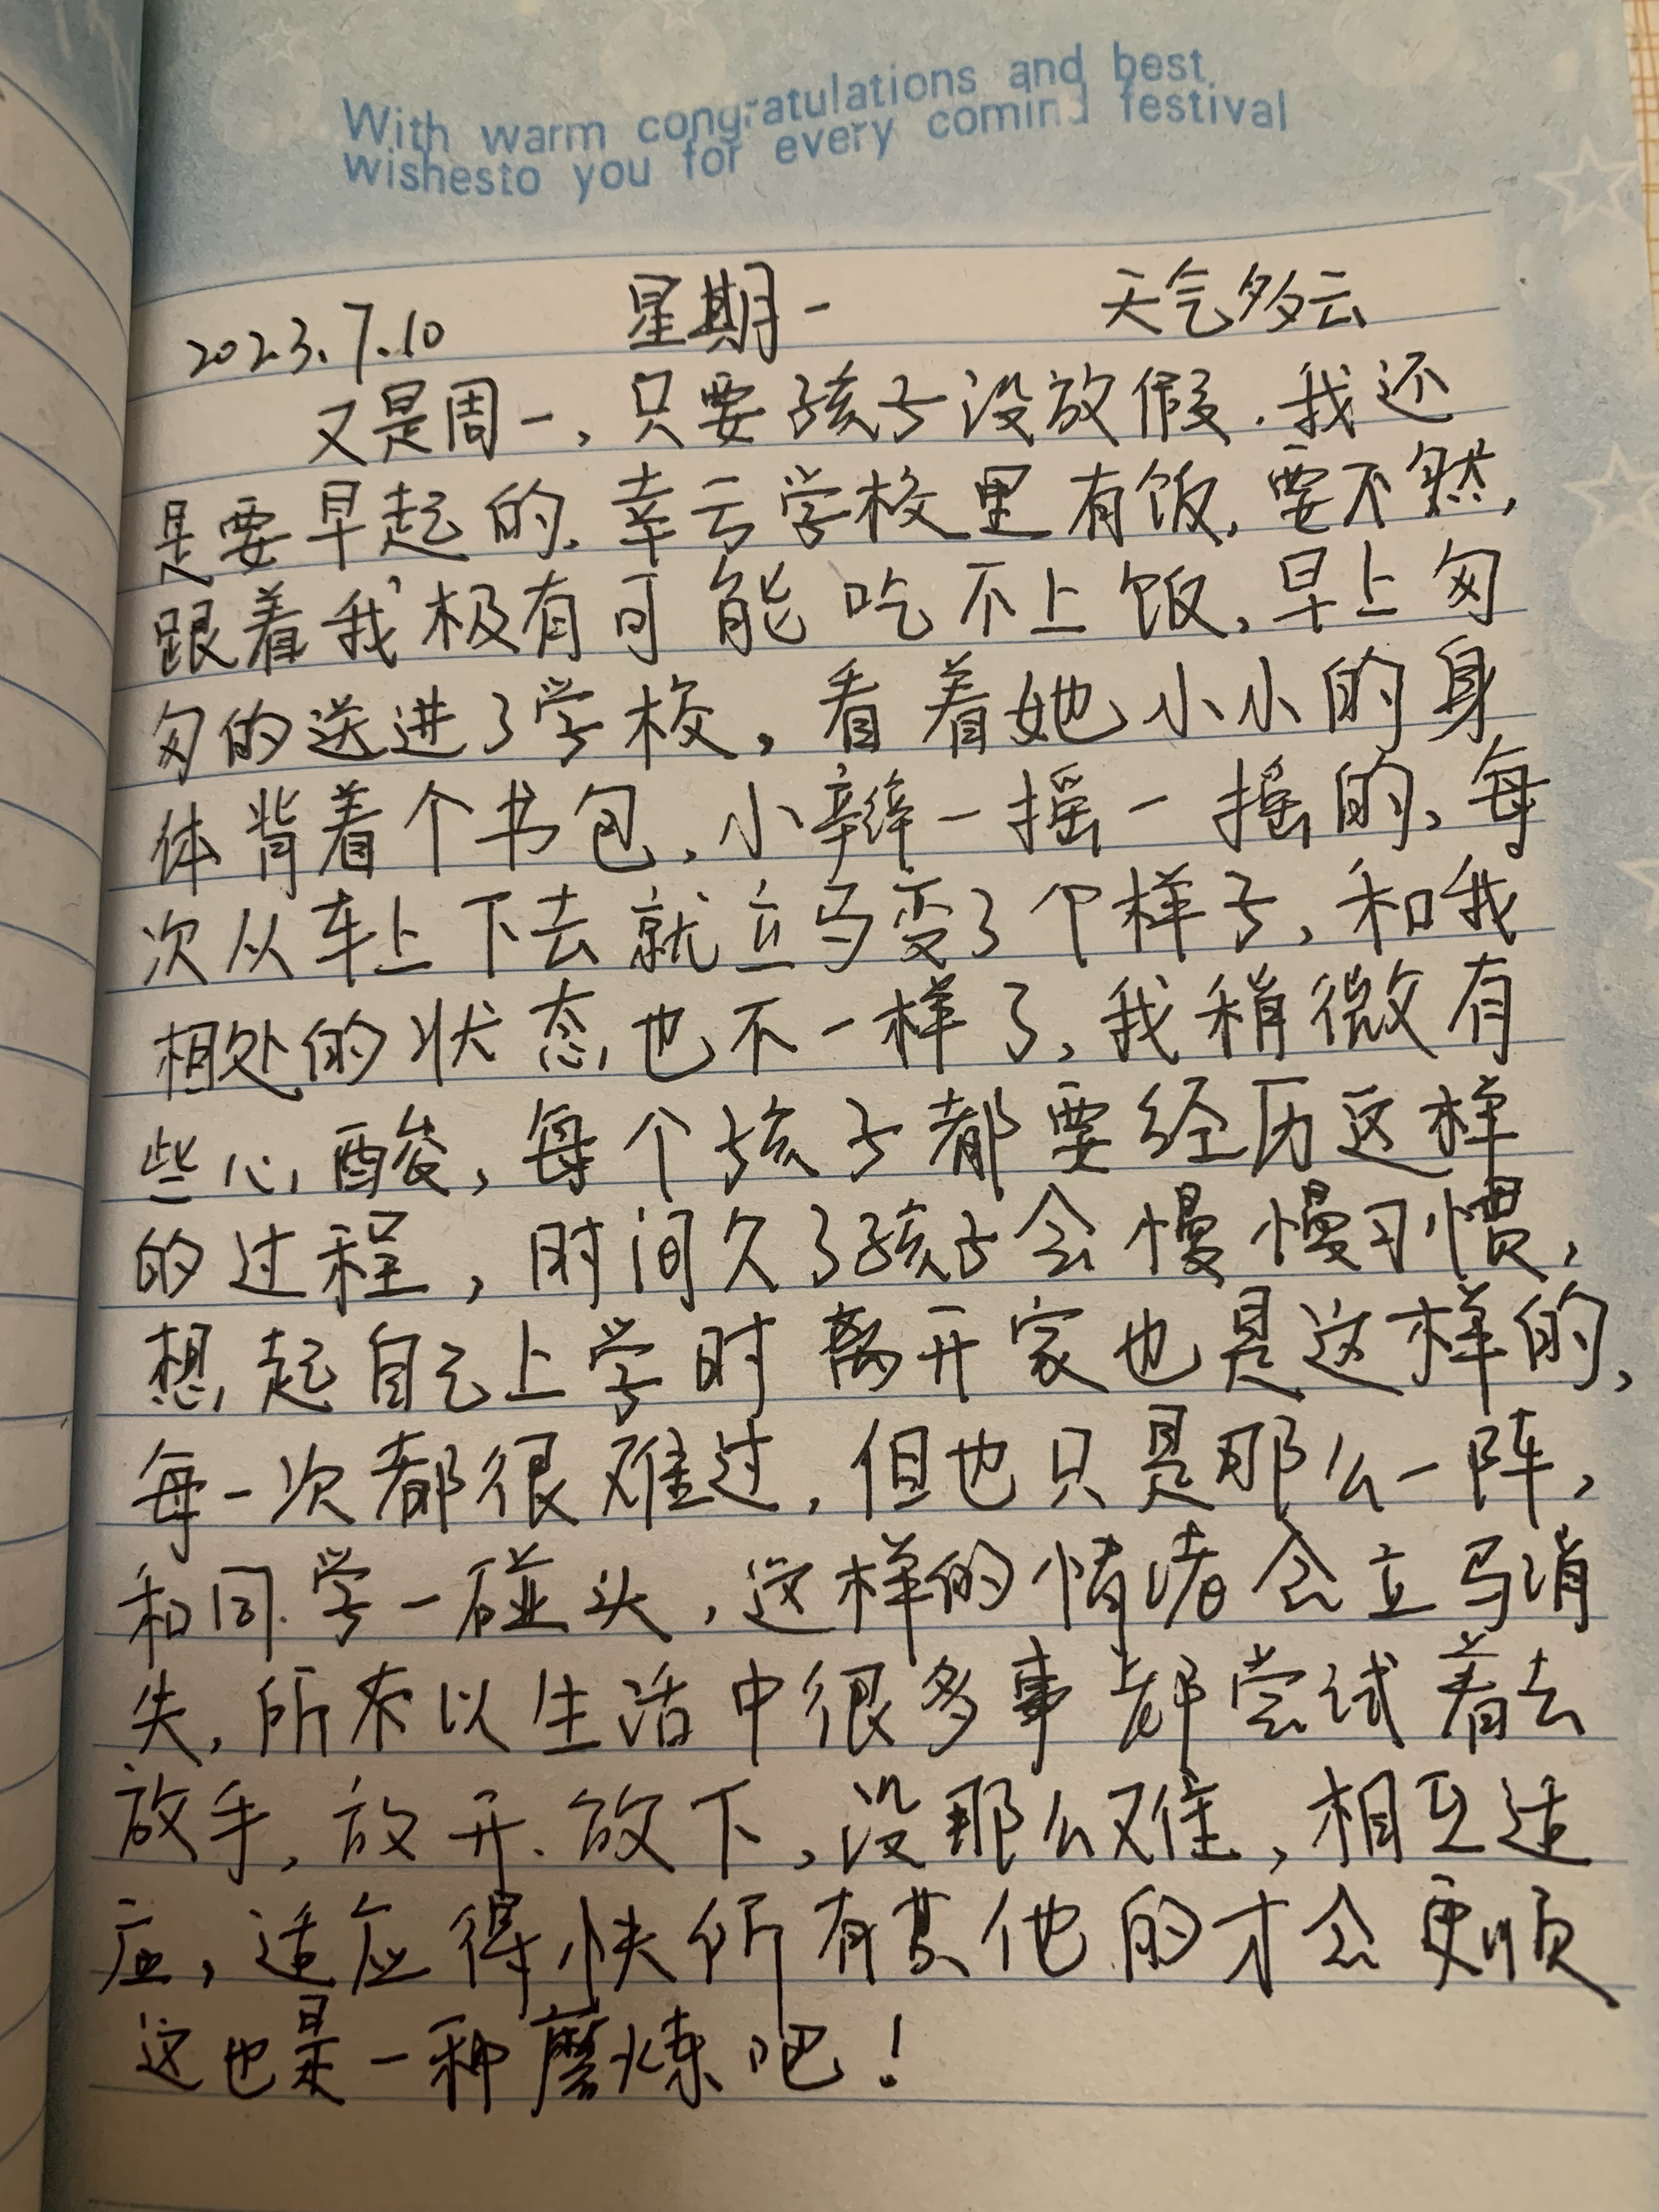 With warm congratulations and best
wishesto you for every coming festival
2023.7.10 星期一 天气多云
又是周一,只要孩子没放假.我还
是要早起的.幸亏学校里有饭,要不然,
跟着我极有可能吃不上饭,早上匆
匆的送进了学校,看着她小小的身
体背着个书包,小辫一摇一摇的,每
次从车上下去就立马变了个样子,和我
相处的状态也不一样了,我稍微有
些心酸,每个孩子都要经历这样
的过程,时间久了孩子会慢慢习惯,
想起自己上学时离开家也是这样的,
每一次都很难过,但也只是那么一阵,
和同学一碰头,这样的情绪会立马消
失,所有以生活中很多事都尝试着去
放手,放开、放下,没那么难,相互适
应,适应得快所有其他的才会更顺
这也是一种磨炼吧!